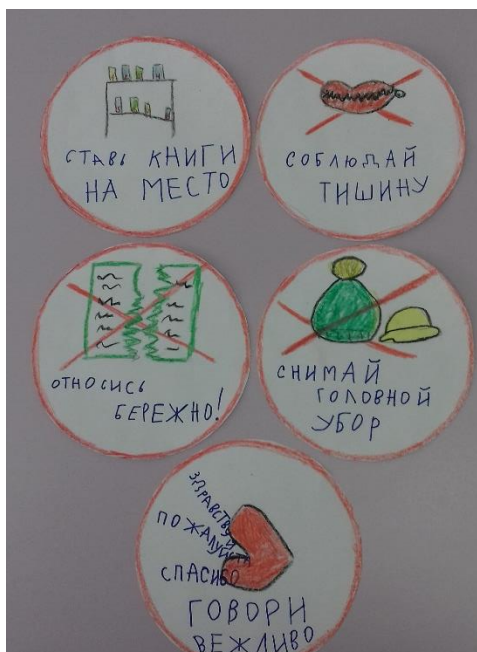 СТАВЬ КНИГИ
НА МЕСТО
СОБЛЮДАЙ
ТИШИНУ
ОТНОСИСЬ
БЕРЕЖНО!
СНИМАЙ
ГОЛОВНОЙ
УБОР
ЗДРАВСТВУЙ
ПОЖАЛУЙСТА
СПАСИБО
ГОВОРИ
ВЕЖЛИВО